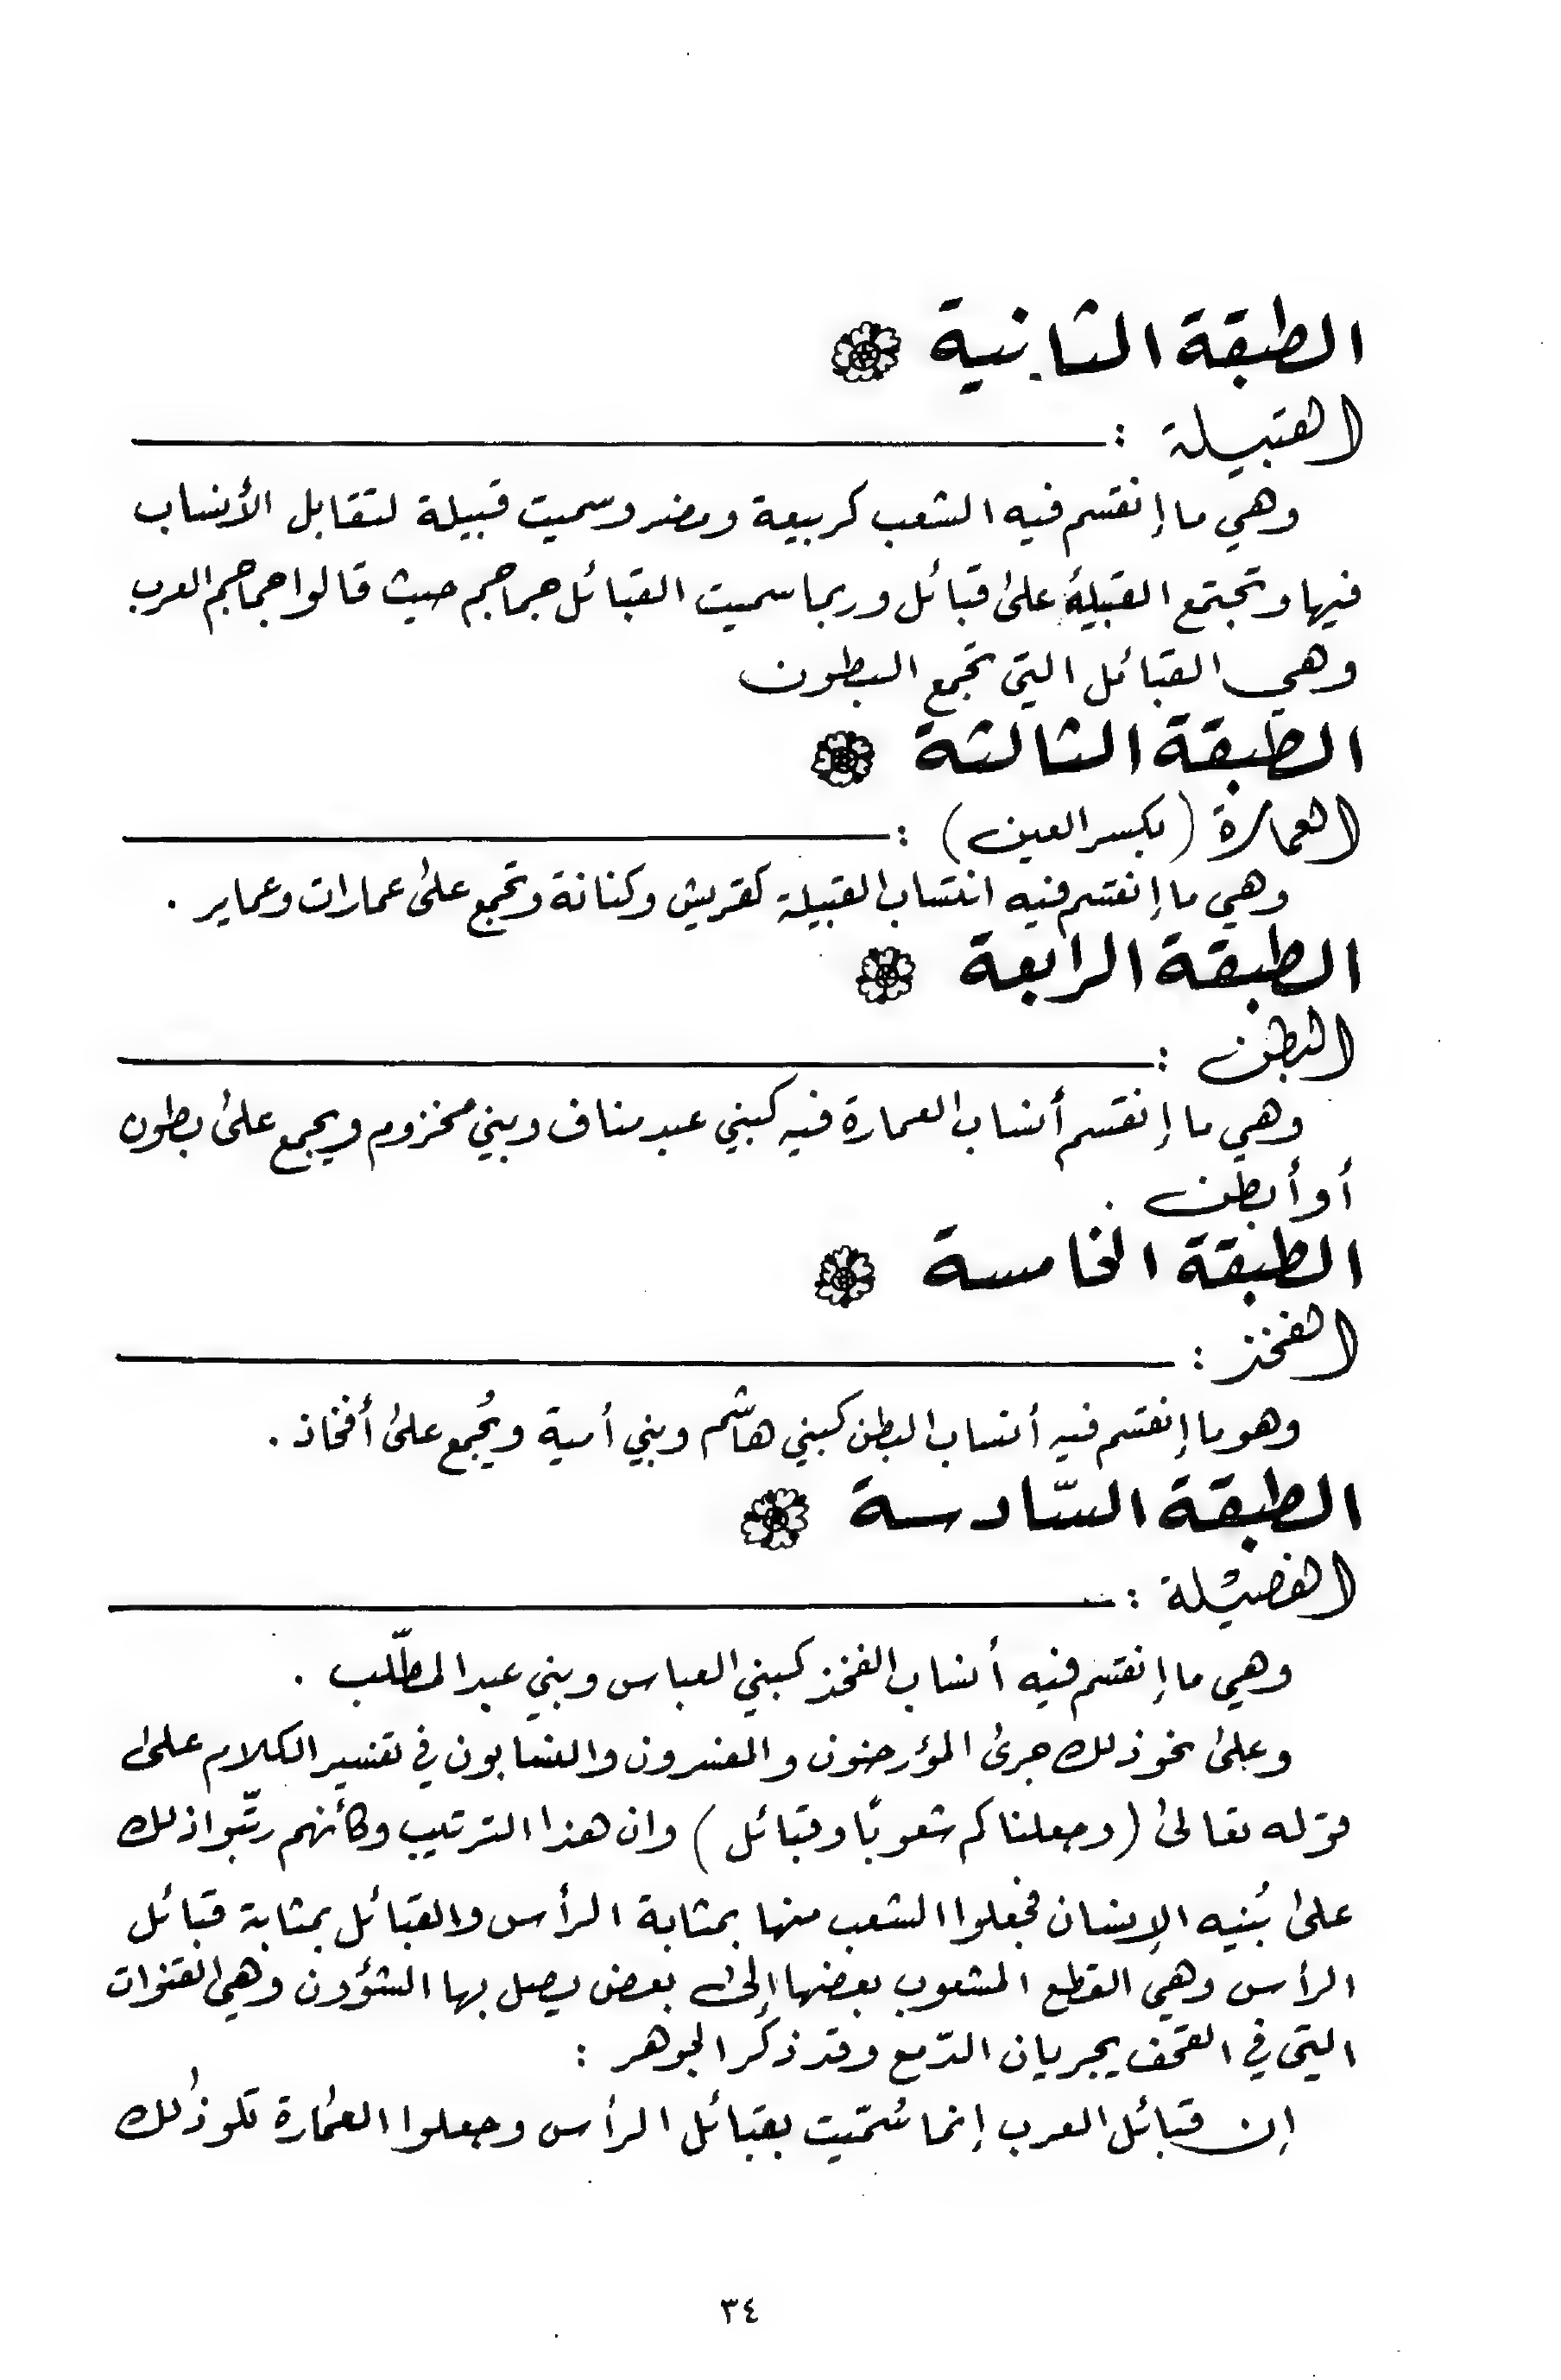 الطبقة الثانية
القبيلة :
وهي ما إنقسم فيه الشعب كربيعة ومضر وسميت قبيلة لتقابل الأنساب
فيها وتجتمع القبيلة على قبائل وربما سميت القبائل جماجم حيث قالوا جماجم العرب
وهي القبائل التي تجمع البطون
الطبقة الثالثة
العمارة (بكسر العين) :
وهي ما إنقسم فيه انتساب القبيلة كقريش وكنانة وتجمع على عمارات وعماير .
الطبقة الرابعة
البطن :
وهي ما إنقسم أنساب العمارة فيه كبني عبد مناف وبني مخزوم ويجمع على بطون
أو أبطن .
الطبقة الخامسة
الفخذ :
وهو ما إنقسم فيه أنساب البطن كبني هاشم وبني أمية ويُجمع على أفخاذ .
الطبقة السّادسة
الفصيلة :
وهي ما إنقسم فيه أنساب الفخذ كبني العباس وبني عبد المطّلب .
وعلى نحو ذلك جرى المؤرخون والمفسرون والنسابون في تفسير الكلام على
قوله تعالى (وجعلناكم شعوبًا وقبائل) وان هذا الترتيب وكأنهم رتّبوا ذلك
على بُنيه الإنسان فجعلوا الشعب منها بمثابة الرأس والقبائل بمثابة قبائل
الرأس وهي القطع المشعوب بعضها إلى بعض يصل بها الشؤون وهي القنوات
التي في القحف يجريان الدّمع وقد ذكر الجوهر :
إن قبائل العرب إنما سُمّيت بقبائل الرأس وجعلوا العمارة تلو ذلك
٣٤